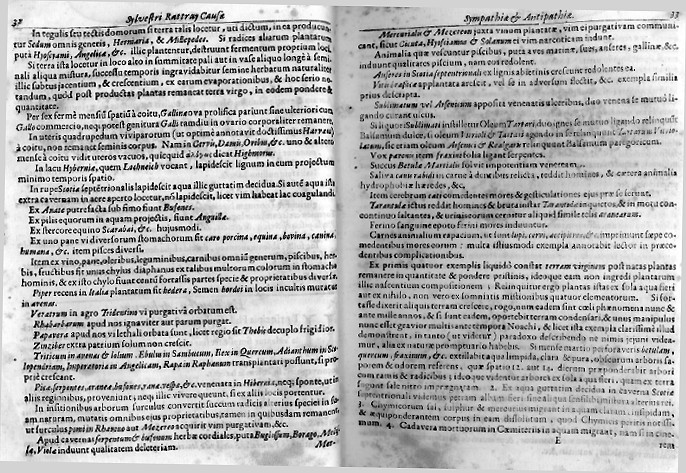 32 Sylvestri Rattray Causæ
In tegulis seu tectis domorum si terra talis locetur, uti dictum, in ea producun-
tur Sedum omnis generis, Hermaria, & Millepedes. Si radices aliarum plantarum
putà Hyoscyami, Angelicæ, &c. illic plantentur, destruunt fermentum proprium loci.
Si terra ista locetur in loco alto in summitate pali aut in vase aliquo longè à semi-
nali aliqua mistura, successu temporis ingravidabitur semine herbarum naturaliter
illic subtus jacentium, & crescentium, ex earum evaporationibus, & hoc serio no-
tandum, quòd post productas plantas remaneat terra virgo, in eodem pondere &
quantitate.
Per sex fermè mensium spatiū à coitu, Gallinæ ova prolifica pariunt sine ulteriori cum
Gallo commercio, neq; potest genitura Galli tamdiu in ovario corporaliter remanere.
In uteris quadrupedum viviparorum (ut optimè annotavit doctissimus Harvæus)
à coitu, non remanet seminis corpus. Nam in Cervis, Damis, Ovibus, &c. uno & altero
mense à coitu vidit uteros vacuos, quicquid dicat Highmorus.
In lacu Hybernia, quem vocant, lapidescit lignum in eum projectum
minimo temporis spatio.
In rupe Scotiæ septētrionalis lapidescit aqua illic guttatim decidua. Si autē aqua ista
extra cavernam in aere aperto locetur, nō lapidescit, licet vim habeat lac coagulandi.
Ex Anate putrefacta sub fimo fiunt Bufones.
Ex pilis equorum in aquam projectis, fiunt Anguillæ.
Ex stercore equino Scarabæi, &c. hujusmodi.
Ex uno pane vi diversorum stomachorum fit caro porcina, equina, bovina, canina,
humana, &c. item pisces diversi.
Item ex vino, pane, oleribus, leguminibus, carnibus omniū generum, piscibus, her-
bis, fructibus fit unus chylus diaphanus ex talibus multorum colorum in stomacho
hominis, & ex isto chylo fiunt centū fortassis partes specie & proprietatibus diversæ.
Piper recens in Italia plantatum fit hedera, Semen hordei in locis incultis mutatur
in avenam.
Veratrum in agro Tridentino vi purgativâ orbatum est.
Rhabarbarum apud nos ignaviter aut parum purgat.
Papavera apud nos vi lethali orbata sunt, licet regio sit Thebis decuplo frigidior.
Zinziber extra patrium solum non crescit.
Triticum in avenas & lolium. Ebulus in Sambucum, Ilex in Quercum, Adianthum in Sco-
lopendriam, Imperatoria in Angelicam, Rapa in Raphanum transplantari possunt, si pro-
priè crescant.
Picæ, serpentes, araneæ, bufones, ranæ, talpæ, &c. venenata in Hibernis, neq; sponte, ut in
aliis regionibus, proveniunt; neq; illic viverequeunt, si ex aliis locis portentur.
In insitionibus arborum surculus convertit succum radicis alterius speciei in su-
am naturam, mutatis omnibus ejus proprietatibus, tamen in quibusdam remanent,
ut surculus pomi in Rhamno aut Mezereo acquirit vim purgativam, &c.
Apud cavernas serpentum & bufonum herbæ cordiales, puta Buglossum, Borago, Melis-
sa, Viola induunt qualitatem deleteriam.
Mer-
Sympathiæ & Antipathiæ. 33
Mercurialis & Mezereon juxta vinum plantatæ, vim ei purgativam communi-
cant, sicut Cicuta, Hyosciamus & Solanum ei vim narcoticam indunt.
Animalia quæ vescuntur piscibus, puta aves marinæ, sues, anseres, gallinæ, &c.
induunt qualitates piscium, nam eos redolent.
Anseres in Scotia septentrionali ex lignis abietinis crescunt redolentes ea.
Vitis applantata arescit, vel se in adversum flectit, &c. exempla similia
prius descripta.
Sublimatum vel Arsenicum apposita venenatis ulceribus, duo venena se mutuò li-
gando curant ulcus.
Si liquor Sublimati instilletur Oleum Tartari, duo ignes se mutuo ligando relinquūt
Balsamum dulce, si oleum Vitrioli & Tartari agendo in se relinquunt
, sic etiam oleum Arsenici & Realgaris relinquunt Balsamum paregoricum.
Vox parum item fraxini folia ligant serpentes.
Succus Betulæ Martialis solvit impotentiam veneream.
Saliva canis rabidi in carne à dentibus relicta, reddit homines, & cætera animalia
hydrophobiæ hæredes, &c.
Item cerebrum cati comedentes mores & gesticulationes ejus præ se ferunt.
Tarantulæ ictus reddit homines & bruta instar Tarantulæ inquietos, & in motu
continuo saltantes, & urina istorum cernitur aliquid simile telis aranearum.
Ferino sanguine epoto ferini mores induuntur.
Carnes animalium rapacium, ut sunt lupi, cervi, accipitres, &c. imprimunt sæpe co-
medentibus mores eorum: multa istiusmodi exempla annotabit lector in præce-
dentibus complicationibus.
Ex primis quatuor exemplis liquidò constat terram virginem post natas plantas
remanere in quantitate & pondere pristinis, ideoque eam non ingredi plantarum
illic nascentium compositionem: Relinquitur ergo plantas istas ex sola aqua fieri
aut ex nihilo, non verò ex somniatis mistionibus quatuor elementorum. Si for-
tasse dixerit aliquis terram crescere, rogo, num eadem sint cœli phænomena nunc &
ante mille annos, & si sunt eadem, oportebit terram condensari, & unus manipulus
nunc esset gravior multis ante tempora Noachi, & licet ista exempla clarissimè illud
demonstrent, in tanto (ut videtur) paradoxo describendo ne nimis jejuni videa-
mur, alia ex naturæ promptuario habebis. Si mense martio perforaveris betulam,
quercum, fraxinum, &c. exstillabit aqua limpida, clara & pura, obscurum arboris sa-
porem & odorem referens, quæ spatio 12. aut 14. dierum præponderabit arbori
cum ramis & radicibus; ideo quæ videntur arbores ex sola aqua fieri, quam ex terra
sugunt sale nitro imprægnatam. 2. Ex aqua guttatim decidua in caverna Scotiæ
septentrionalis videmus petram albam fieri sine aliqua sensibili mistura alterius rei.
3. Chymicorum sal, sulphur & mercurius migrant in aquam claram, insipidam,
& æquiponderantem corpus in eam dissolutum, quod Chymici peritis notissi-
mum. 4. Cadavera mortuorum in Cœmiteriis in aquam migrant, nam si in cine-
E rem